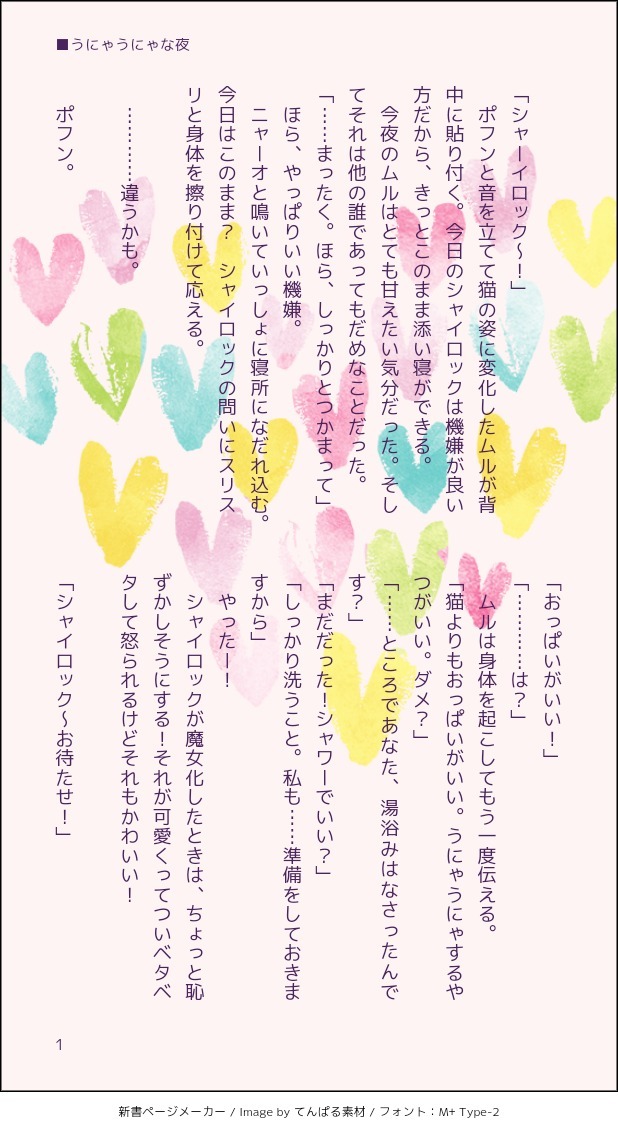 ■うにゃうにゃな夜
「シャーイロック〜！」
　ポフンと音を立てて猫の姿に変化したムルが背
中に貼り付く。今日のシャイロックは機嫌が良い
方だから、きっとこのまま添い寝ができる。
　今夜のムルはとても甘えたい気分だった。そし
てそれは他の誰であってもだめなことだった。
「……まったく。ほら、しっかりとつかまって」
　ほら、やっぱりいい機嫌。
　ニャーオと鳴いていっしょに寝所になだれ込む。
今日はこのまま？　シャイロックの問いにスリス
リと身体を擦り付けて応える。
　…………違うかも。
　ポフン。
「おっぱいがいい！」
「…………は？」
　ムルは身体を起こしてもう一度伝える。
「猫よりもおっぱいがいい。うにゃうにゃするや
つがいい。ダメ？」
「……ところであなた、湯浴みはなさったんで
す？」
「まだだった！シャワーでいい？」
「しっかり洗うこと。私も……準備をしておきま
すから」
　やったー！
　シャイロックが魔女化したときは、ちょっと恥
ずかしそうにする！それが可愛くってついベタベ
タして怒られるけどそれもかわいい！
「シャイロック〜お待たせ！」
1
新書ページメーカー / Image by てんぱる素材 / フォント：M+ Type-2